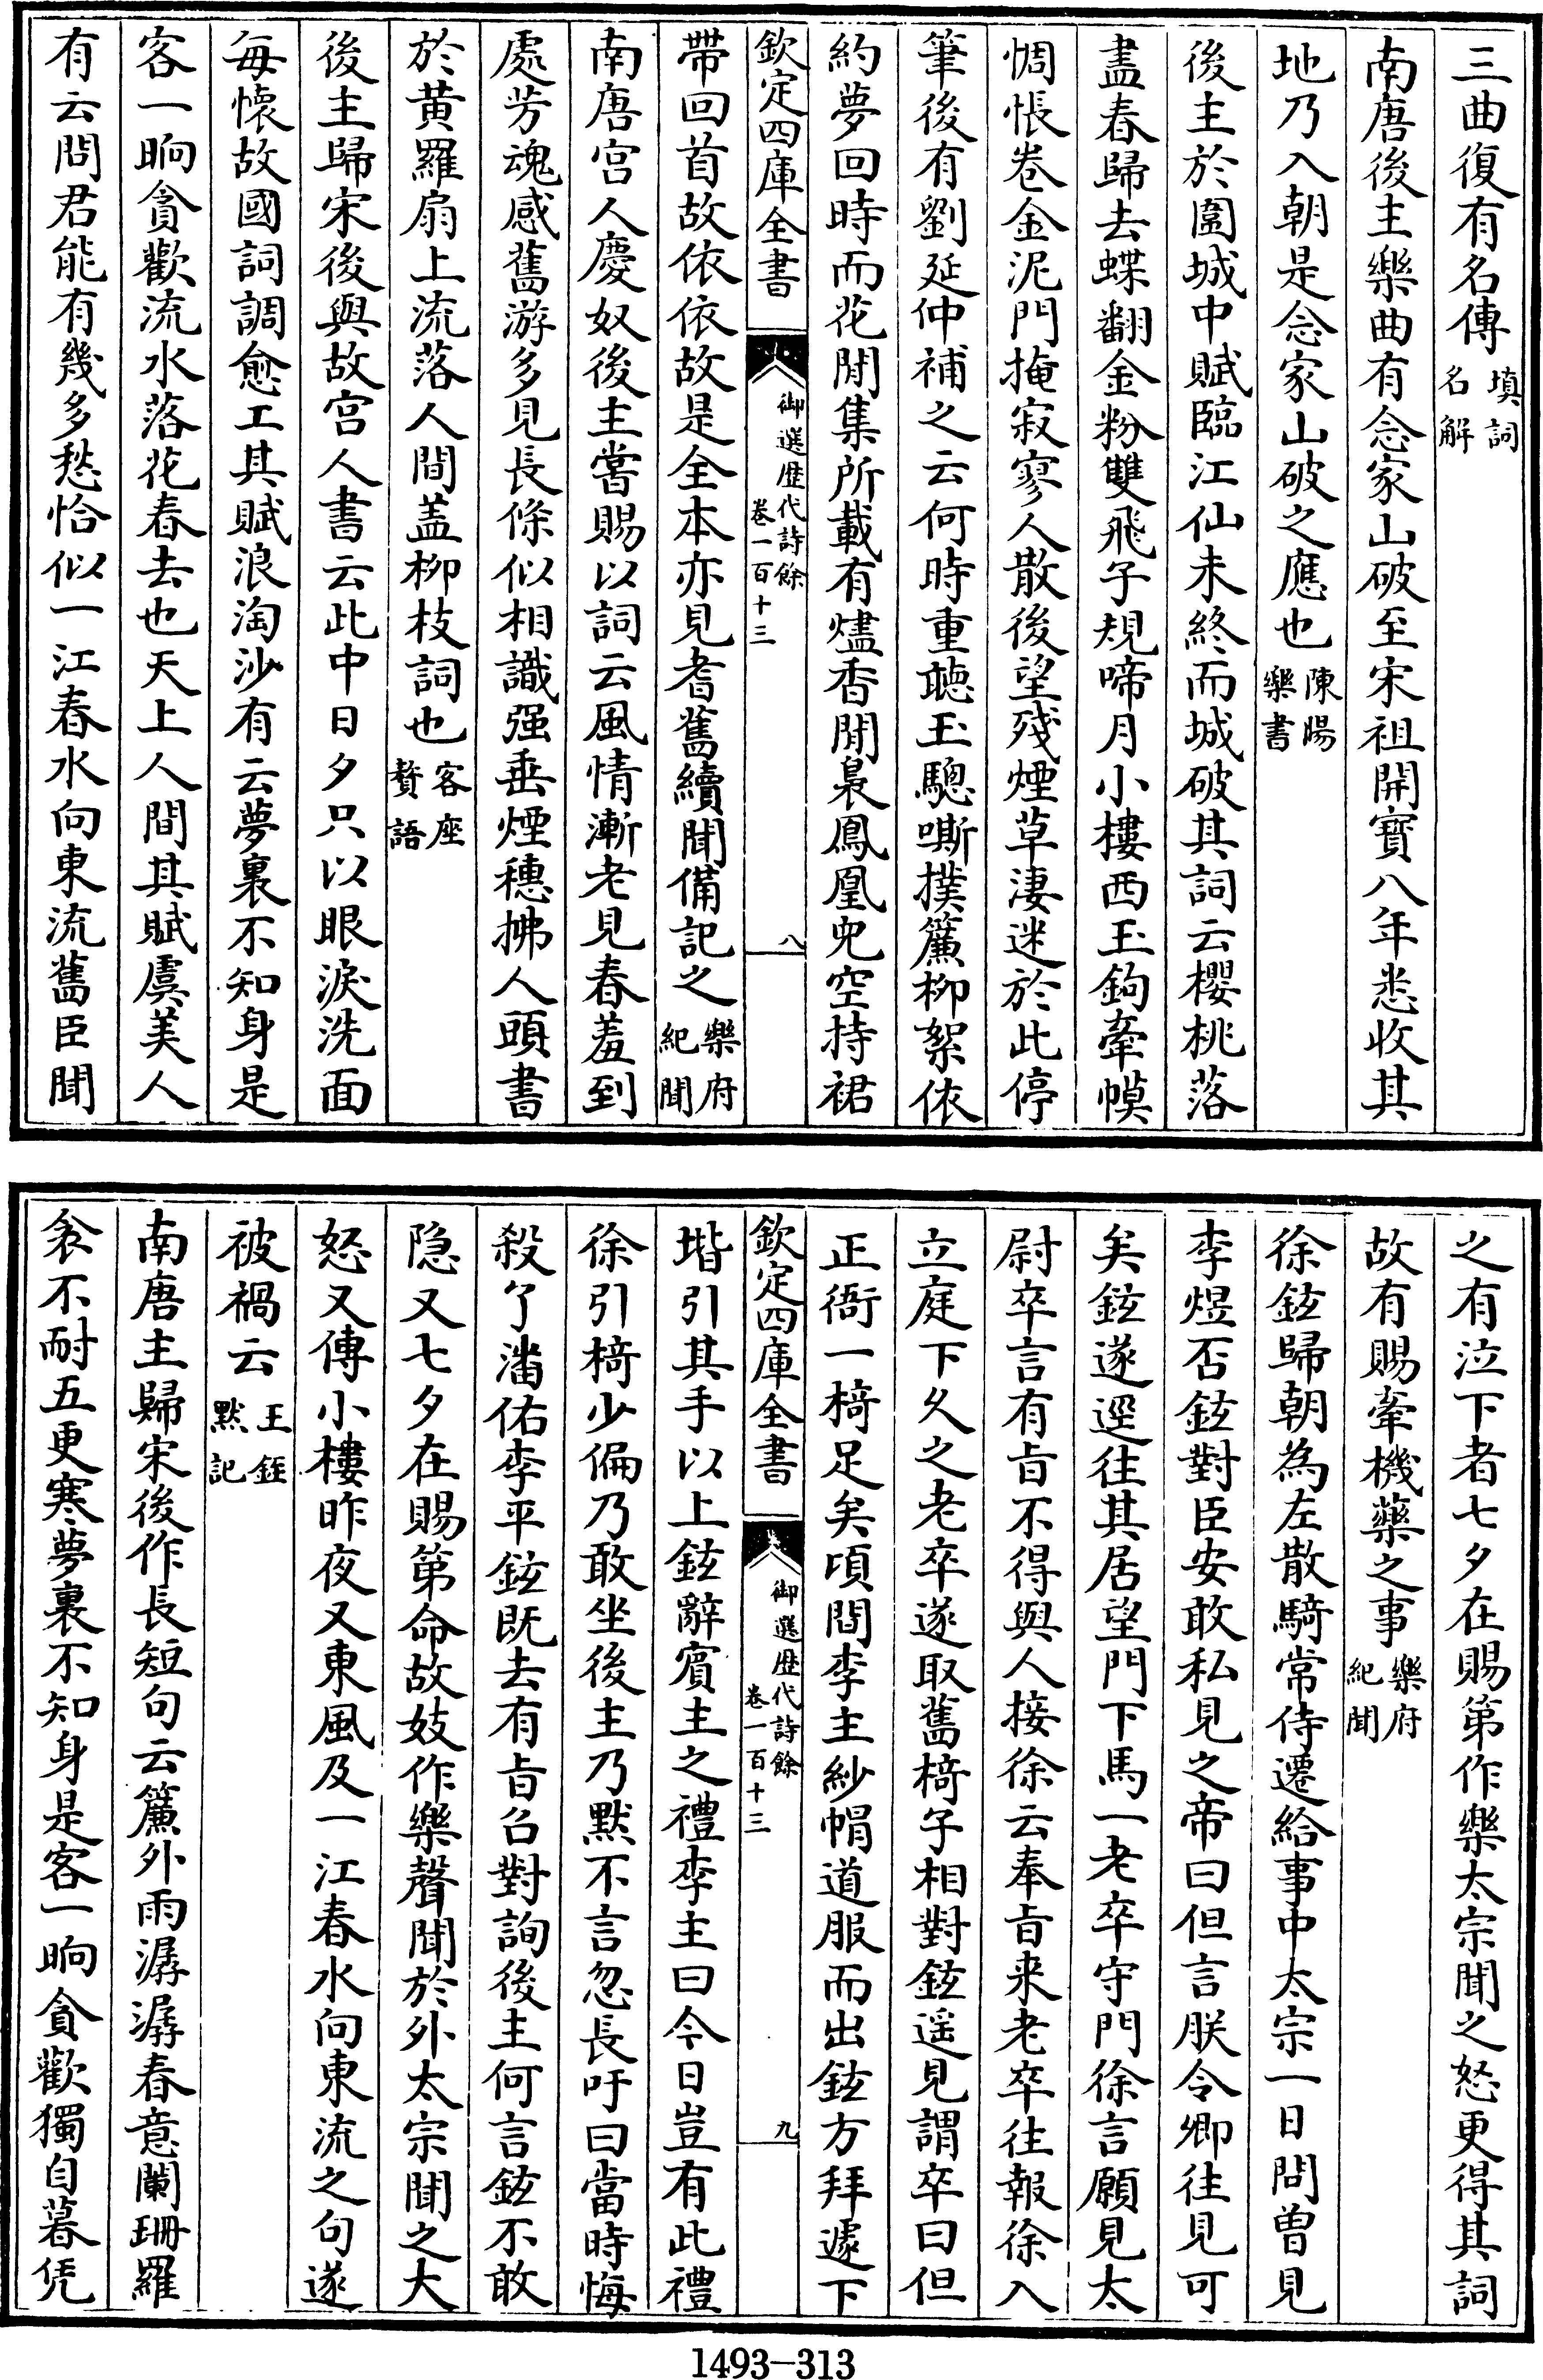 三曲復有名傳填詞名解
南唐後主樂曲有念家山破至宋祖開寳八年悉收其
地乃入朝是念家山破之應也陳暘樂書
後主於圍城中賦臨江仙未終而城破其詞云櫻桃落
盡春歸去蝶翻金粉雙飛子規啼月小樓西玉鉤牽幙
惆悵卷金泥門掩寂寥人散後望殘煙草淒迷於此停
筆後有劉延仲補之云何時重聴玉驄嘶撲簾柳絮依
約夢回時而花間集所載有爐香閒裊鳳凰兒空持裙
欽定四庫全書
御選歴代詩餘
卷一百十三
八
帶回首故依依故是全本亦見耆舊續聞備記之樂府紀聞
南唐宫人慶奴後主嘗賜以詞云風情漸老見春羞到
處芳魂感舊游多見長條似相識强垂煙穗拂人頭書
於黄羅扇上流落人間盖柳枝詞也客座贅語
後主歸宋後與故宫人書云此中日夕只以眼淚洗面
每懷故國詞調愈工其賦浪淘沙有云夢裏不知身是
客一晌貪歡流水落花春去也天上人間其賦虞美人
有云問君能有幾多愁恰似一江春水向東流舊臣聞
之有泣下者七夕在賜第作樂太宗聞之怒更得其詞
故有賜牽機藥之事樂府紀聞
徐鉉歸朝為左散騎常侍遷給事中太宗一日問曽見
李煜否鉉對臣安敢私見之帝曰但言朕令卿往見可
矣鉉遂逕往其居望門下馬一老卒守門徐言願見太
尉卒言有旨不得與人接徐云奉旨来老卒往報徐入
立庭下久之老卒遂取舊椅子相對鉉遥見謂卒曰但
正衙一椅足矣頃間李主紗帽道服而出鉉方拜遽下
欽定四庫全書
御選歴代詩餘
卷一百十三
九
堦引其手以上鉉辭賓主之禮李主曰今日豈有此禮
徐引椅少偏乃敢坐後主乃黙不言忽長吁曰當時悔
殺了潘佑李平鉉既去有旨召對詢後主何言鉉不敢
隐又七夕在賜第命故妓作樂聲聞於外太宗聞之大
怒又傳小樓昨夜又東風及一江春水向東流之句遂
被禍云王銍默記
南唐主歸宋後作長短句云簾外雨潺潺春意闌珊羅
衾不耐五更寒夢裏不知身是客一晌貪歡獨自暮凭
1493-313